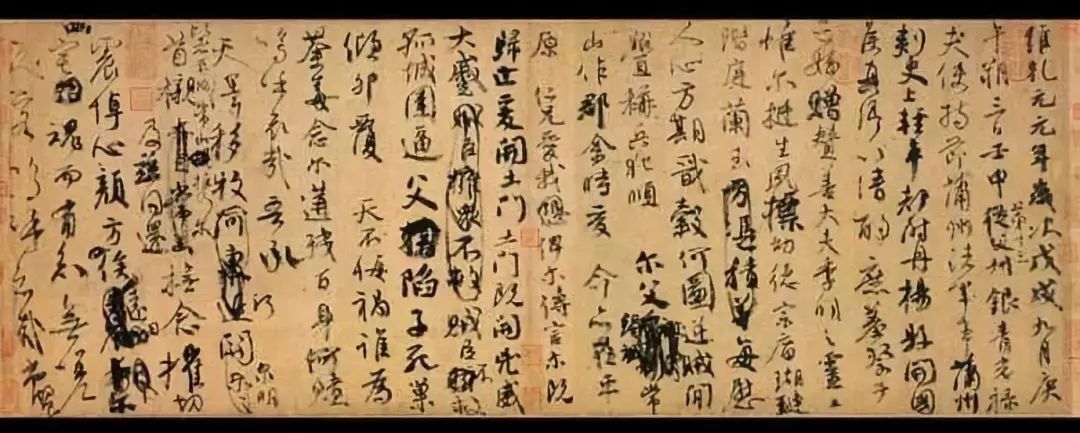 維乾元元年歲次戊戌九月庚
午朔三日壬申第十三從父叔銀青光祿
夫使持節蒲州諸軍事蒲州
刺史上輕車都尉丹楊縣開國
侯真卿以清酌庶羞祭于
亡姪贈贊善大夫季明之靈曰
惟爾挺生夙標幼德宗廟瑚璉
階庭蘭玉方憑積善每慰
人心方期戩穀何圖逆賊間
釁稱兵犯順爾父常
山作郡余時受命亦在平
原仁兄愛我俾爾傳言爾既
歸止爰開土門土門既開凶威
大蹙賊臣擁眾不救賊臣不救
孤城圍逼父陷子死巢
傾卵覆天不悔禍誰為
荼毒念爾遘殘百身何贖
嗚呼哀哉吾承
天澤移牧河東近河關泉明
比者再陷常山攜爾
首櫬及茲同還亦自常山撫念摧切
震悼心顏方俟遠日
宅魂而有知無嗟
久客嗚呼哀哉尚饗